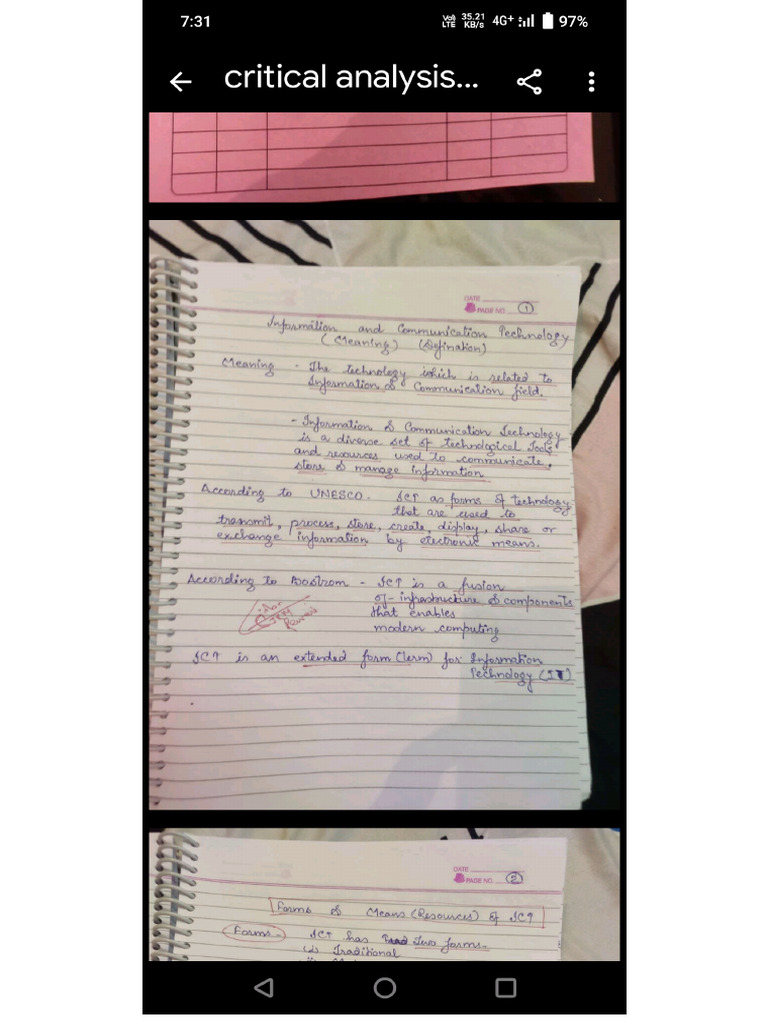 7:31 Vo) LTE 35.21 KB/s 4G+ 97%
critical analysis...
DATE
PAGE NO. 1
Information and Communication Technology
(Meaning) (Defination)
Meaning - The technology which is related to
Information & Communication field.
- Information & Communication Technology
is a diverse set of technological Tools
and resources used to communicate,
store & manage information
According to UNESCO. ICT as forms of technology
that are used to
transmit, process, store, create, display, share or
exchange information by electronic means.
According to Bostrom - ICT is a fusion
of infrastructure & components
that enables
modern computing
ICT is an extended form (term) for Information
Technology (IT)
DATE
PAGE NO. 2
Forms & Means (Resources) of ICT
Forms - ICT has Two forms-
Traditional